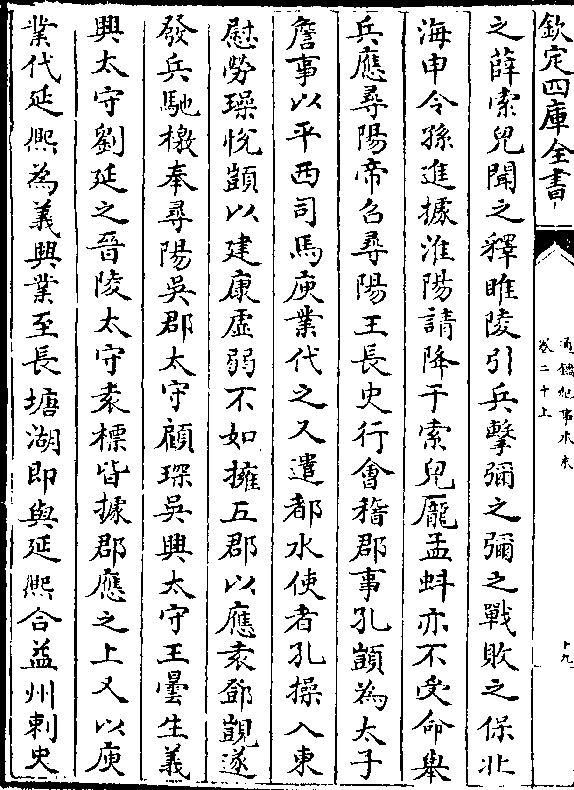 欽定四庫全書
通鑑紀事本末
卷二十上
十九
之薛索兒聞之釋睢陵引兵擊彌之彌之戰敗之保北
海申令孫進據淮陽請降于索兒龎孟蚪亦不受命舉
兵應尋陽帝召尋陽王長史行會稽郡事孔顗為太子
詹事以平西司馬庾業代之又遣都水使者孔操入東
慰勞璪恱顗以建康虛弱不如擁五郡以應袁鄧覬遂
發兵馳檄奉尋陽吳郡太守顧琛吳興太守王曇生義
興太守劉延之晉陵太守袁標皆據郡應之上又以庾
業代延熈為義興業至長塘湖即與延熈合益州刺史